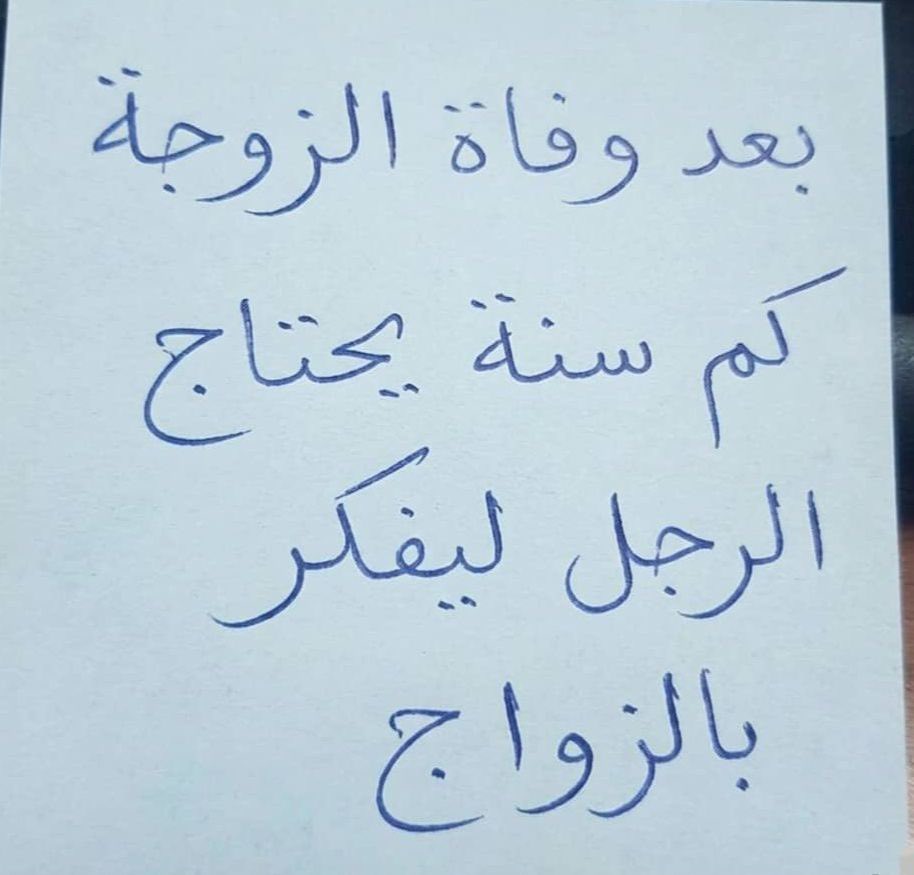 بعد وفاة الزوجة
كم سنة يحتاج
الرجل ليفكر
بالزواج